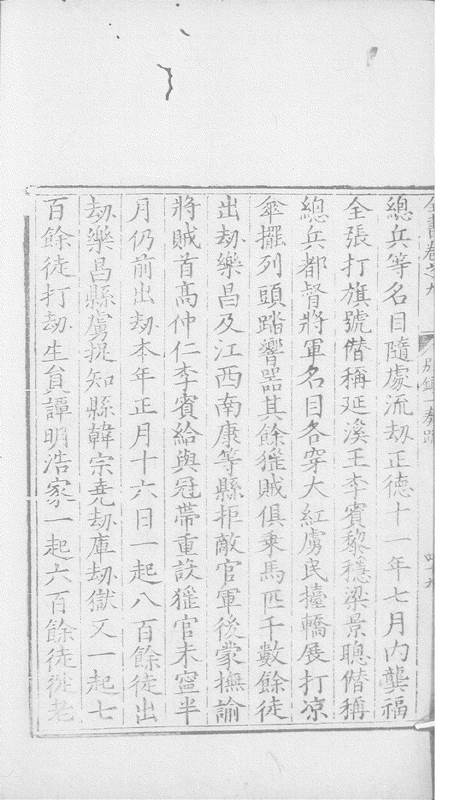 全書卷之九 別錄一 奏疏 四十九
總兵等名目隨處流刼正德十一年七月內龔福
全張打旗號僭稱延溪王李賓黎穩梁景聰僭稱
總兵都督將軍名目各穿大紅虜民擡轎展打凉
傘擺列頭踏響噐其餘猺賊俱乗馬匹千數餘徒
出刼樂昌及江西南康等縣拒敵官軍後蒙撫諭
將賊首髙仲仁李賓給與冠帶重設猺官未寧半
月仍前出刼本年正月十六日一起八百餘徒出
刼樂昌縣虜捉知縣韓宗堯刼庫刼獄又一起七
百餘徒打刼生員譚明浩家一起六百餘徒從老